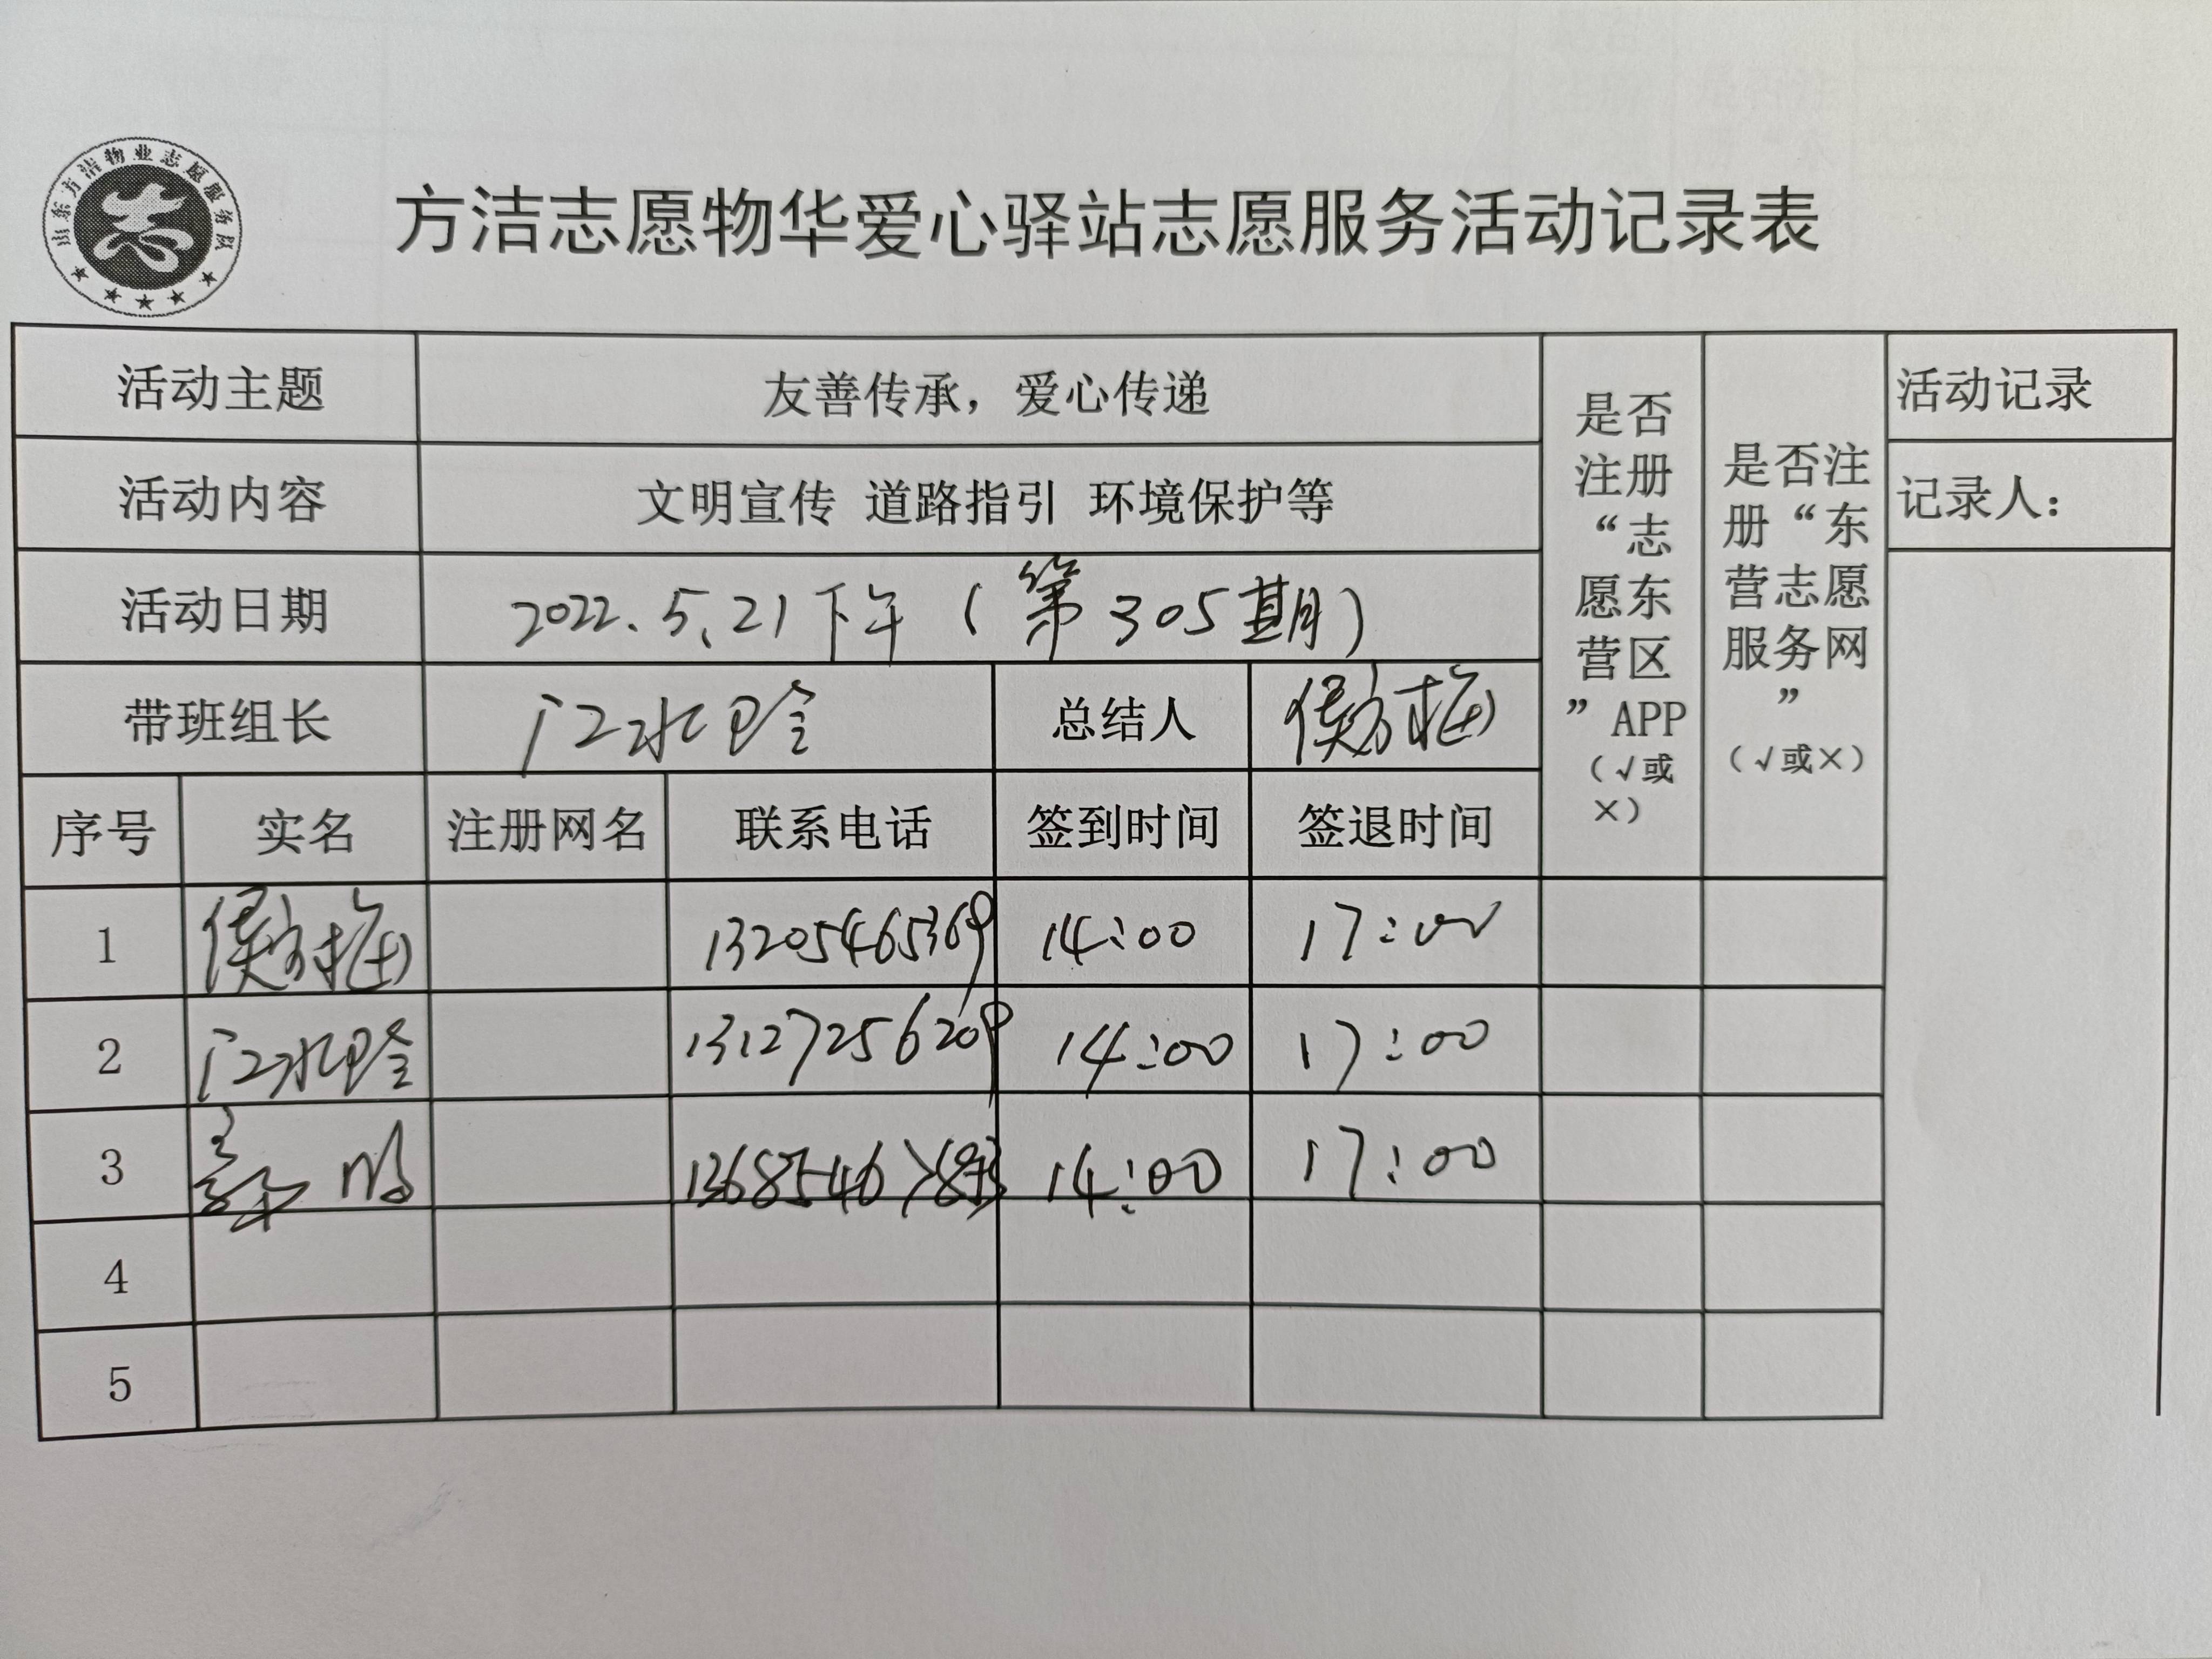 山东方洁物业志愿服务队
方洁志愿物华爱心驿站志愿服务活动记录表
活动主题 友善传承，爱心传递
活动内容 文明宣传 道路指引 环境保护等
活动日期 2022.5.21下午（第305期）
带班组长 总结人 侯方梅
序号 实名 注册网名 联系电话 签到时间 签退时间
是否
注册
“志
愿东
营区
”APP
（√或
×）
是否注
册“东
营志愿
服务网
”
（√或×）
活动记录
记录人：
1 侯方梅 13205465369 14:00 17:00
2 13127256209 14:00 17:00
3 14:00 17:00
4
5